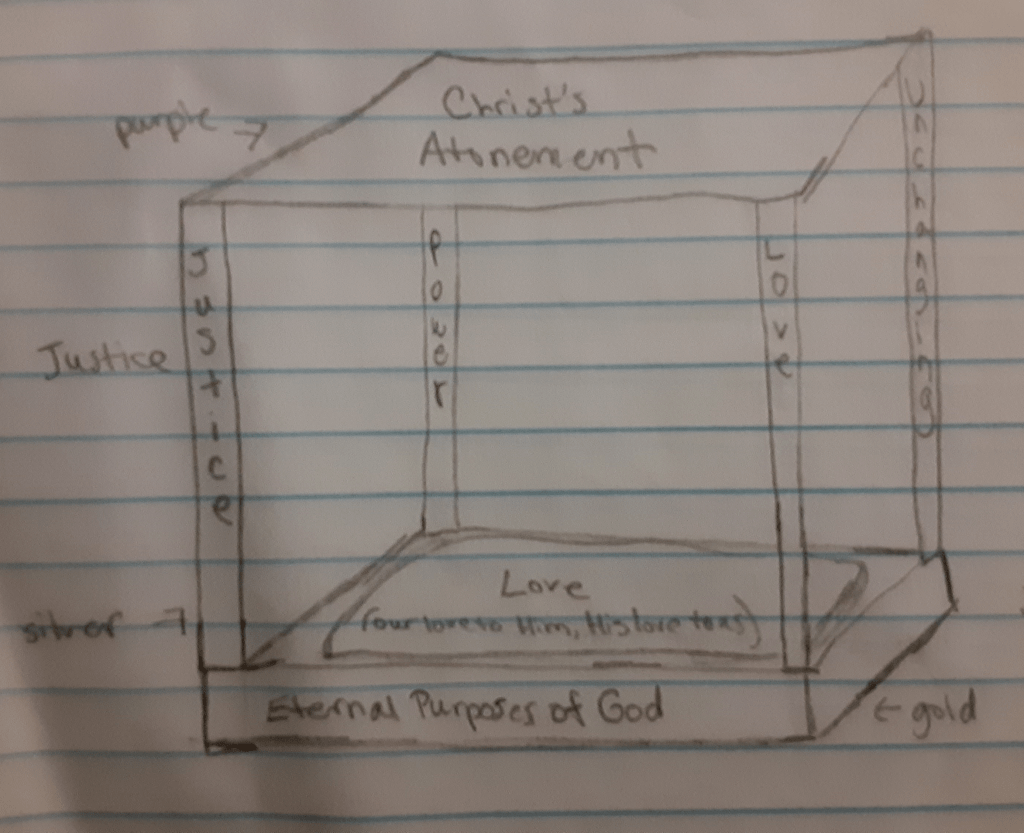 Christ's
Atonement
purple →
Justice
Power
Love
Unchanging
Justice
Love
(our love to Him, His love to us)
silver →
Eternal Purposes of God
← gold